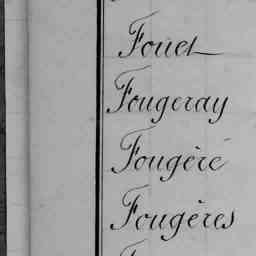 Fouet
Fougeray
Fougère
Fougères